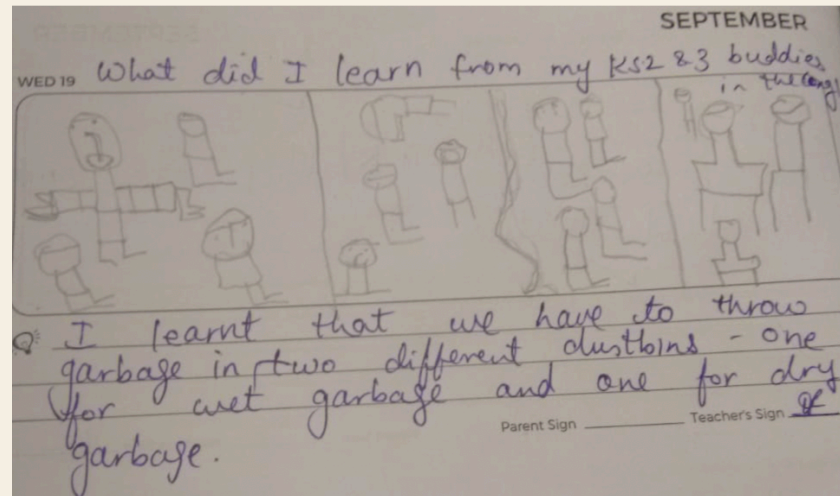 SEPTEMBER
WED 19 What did I learn from my KS2 & 3 buddies
in the
I learnt that we have to throw
garbage in two different dustbins - one
for wet garbage and one for dry
garbage.
Parent Sign Teacher's Sign